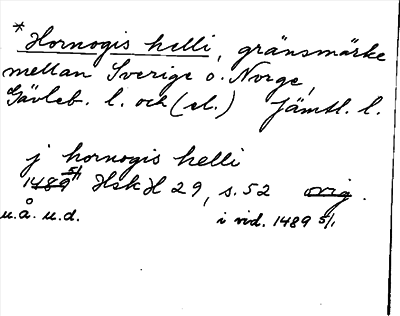 * Hornogis helli, gränsmärke
mellan Sverige o. Norge,
Gävleb. l. och (el.) Jämtl. l.
j hornogis helli
1489 5/1 HSH 29, s. 52 orig.
u.å. u.d. i vid. 1489 5/1